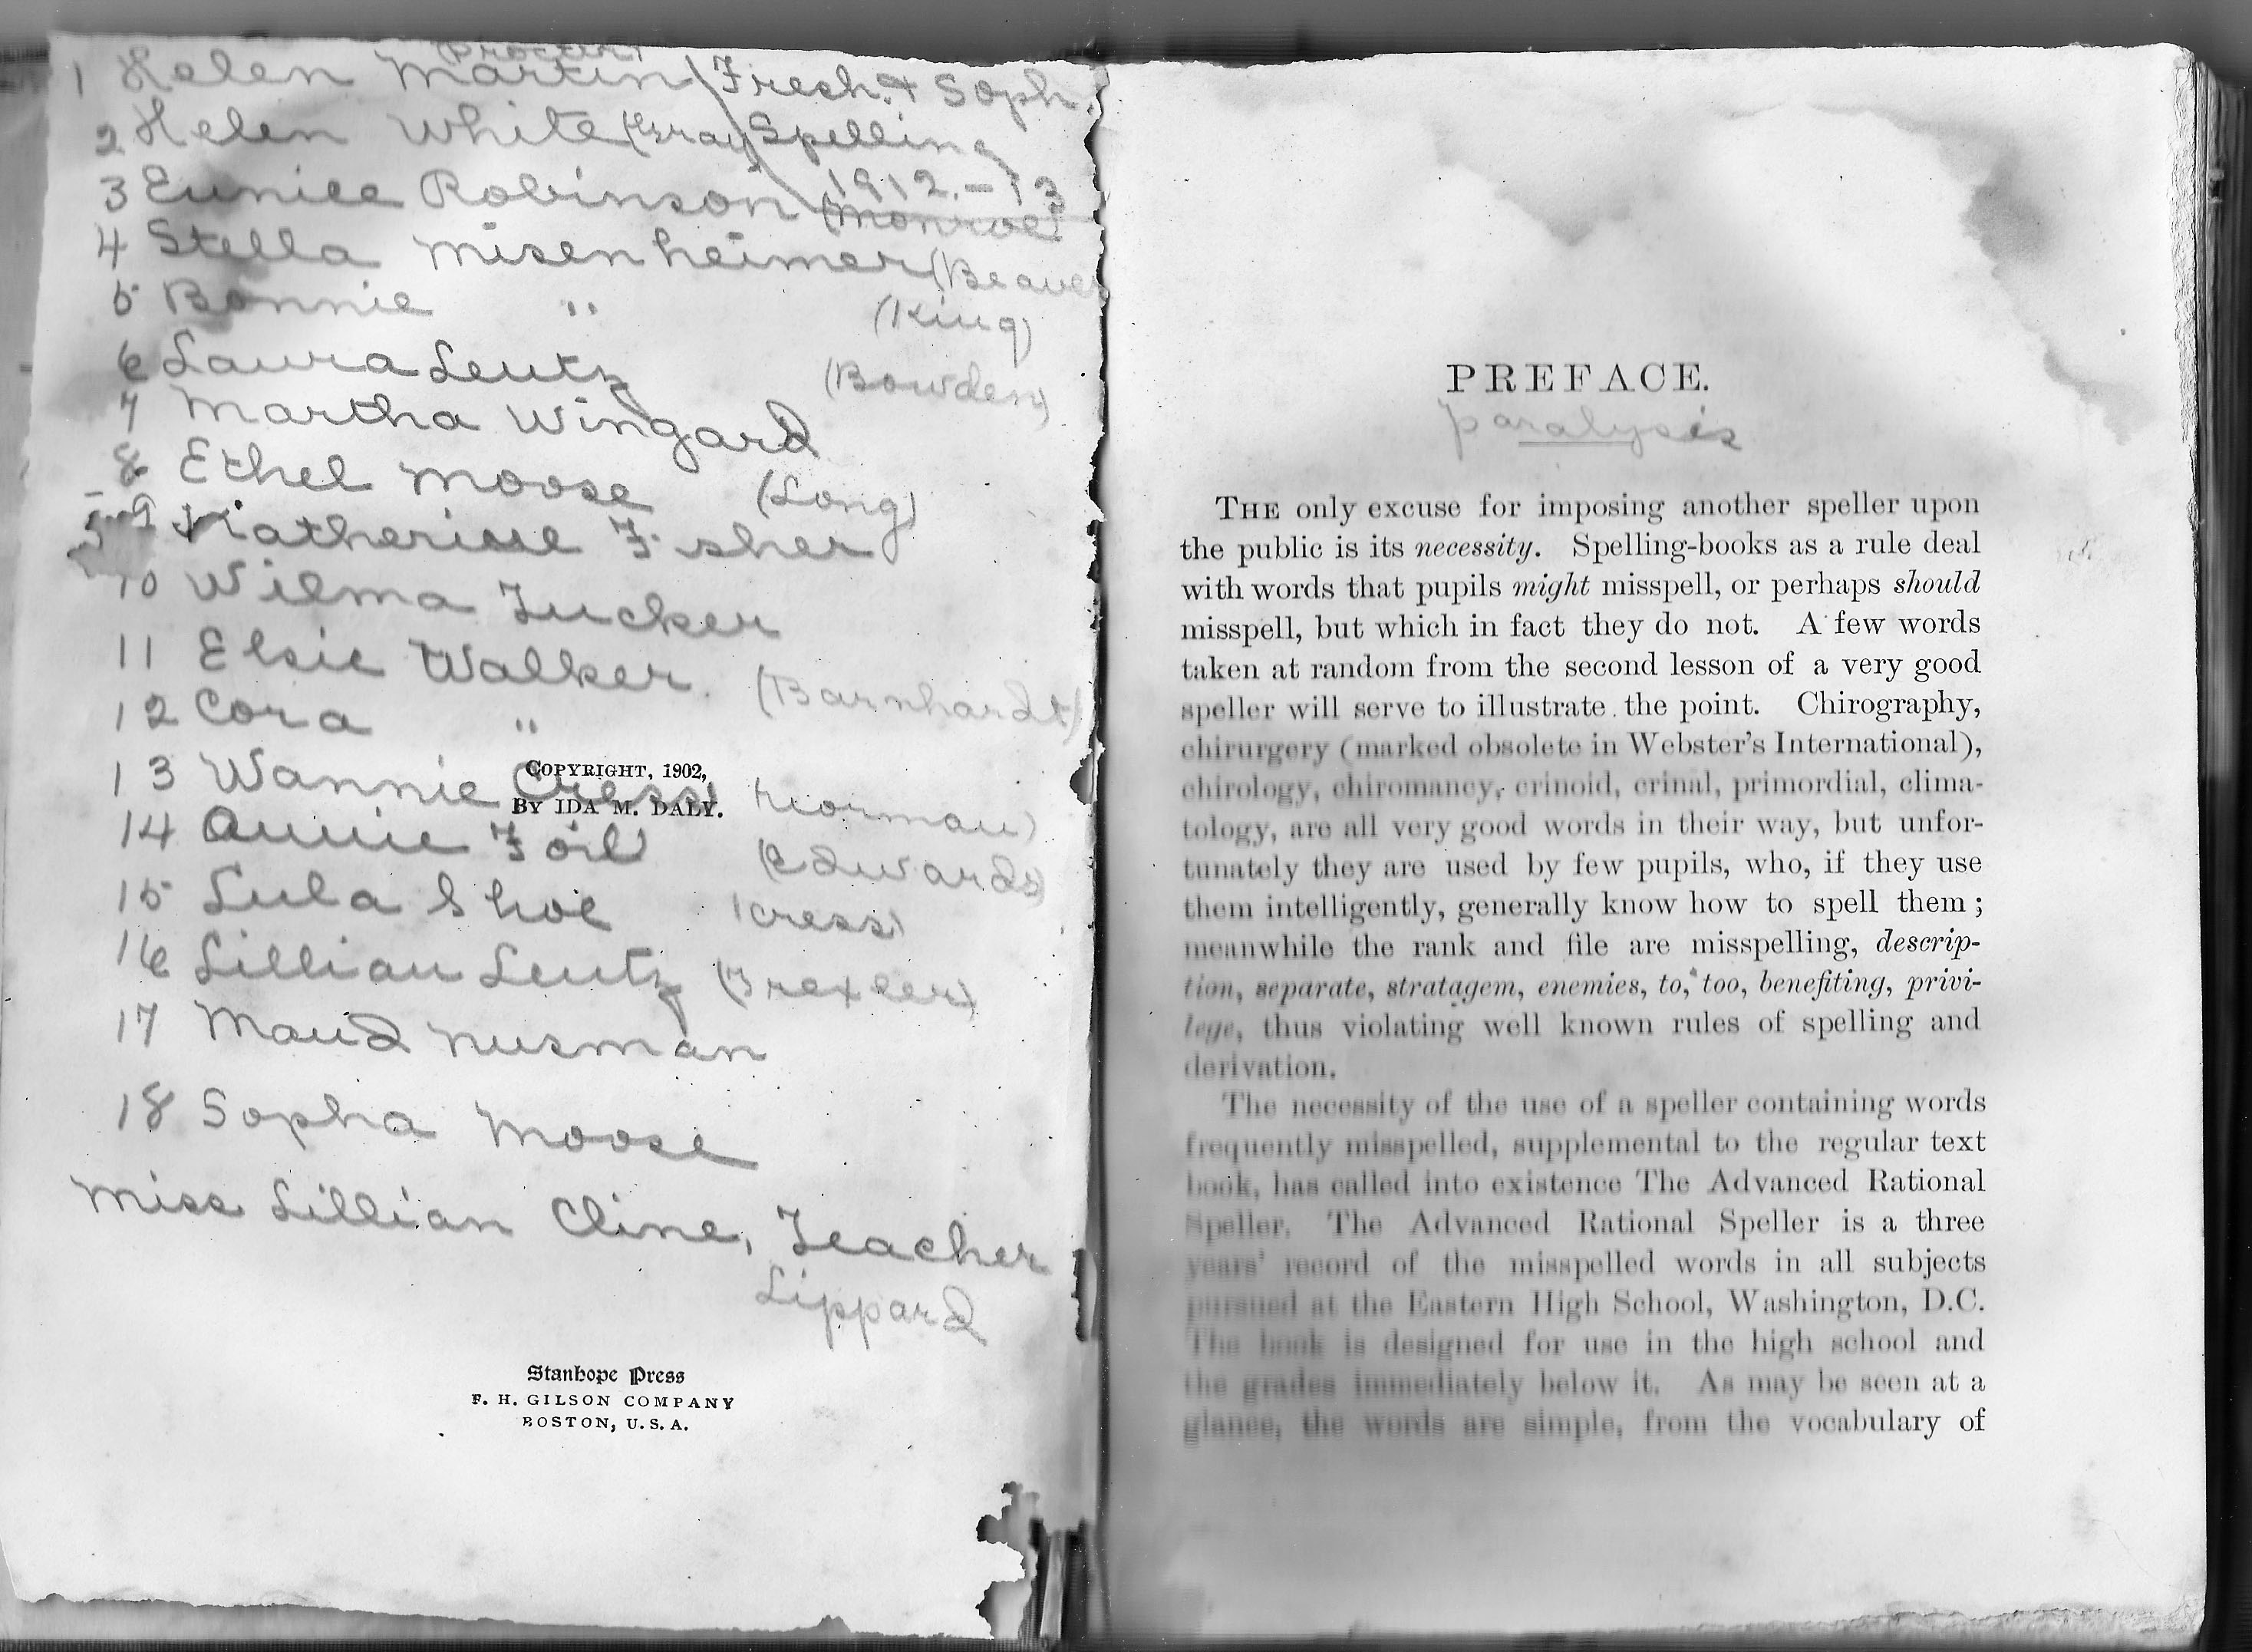 (Procter)
1 Helen Martin Fresh. & Soph.
2 Helen White (Gray) Spelling
1912.-13
3 Eunice Robinson (Monroe)
4 Stella Misenheimer (Beaver
5 Bonnie " (King)
6 Laura Leutz (Bowden)
7 Martha Wingard
8 Ethel Moose (Long)
9 Katherine Fisher
10 Wilma Tucker
11 Elsie Walker. (Barnhardt)
12 Cora "
13 Wannie Cress
COPYRIGHT, 1902,
BY IDA M. DALY.
14 Annie Foil (Edwards)
15 Lula Shoe (Cress)
16 Lillian Leutz (Trexler)
17 Maud Nusman
18 Sopha Moose
Miss Lillian Cline, Teacher
Lippard
Stanhope Press
F. H. GILSON COMPANY
BOSTON, U.S.A.
PREFACE.
paralysis
THE only excuse for imposing another speller upon
the public is its necessity. Spelling-books as a rule deal
with words that pupils might misspell, or perhaps should
misspell, but which in fact they do not. A few words
taken at random from the second lesson of a very good
speller will serve to illustrate the point. Chirography,
chirurgery (marked obsolete in Webster's International),
chirology, chiromancy, crinoid, crinal, primordial, clima-
tology, are all very good words in their way, but unfor-
tunately they are used by few pupils, who, if they use
them intelligently, generally know how to spell them;
meanwhile the rank and file are misspelling, descrip-
tion, separate, stratagem, enemies, to, too, benefiting, privi-
lege, thus violating well known rules of spelling and
derivation.
The necessity of the use of a speller containing words
frequently misspelled, supplemental to the regular text
book, has called into existence The Advanced Rational
Speller. The Advanced Rational Speller is a three
years' record of the misspelled words in all subjects
pursued at the Eastern High School, Washington, D.C.
The book is designed for use in the high school and
the grades immediately below it. As may be seen at a
glance, the words are simple, from the vocabulary of